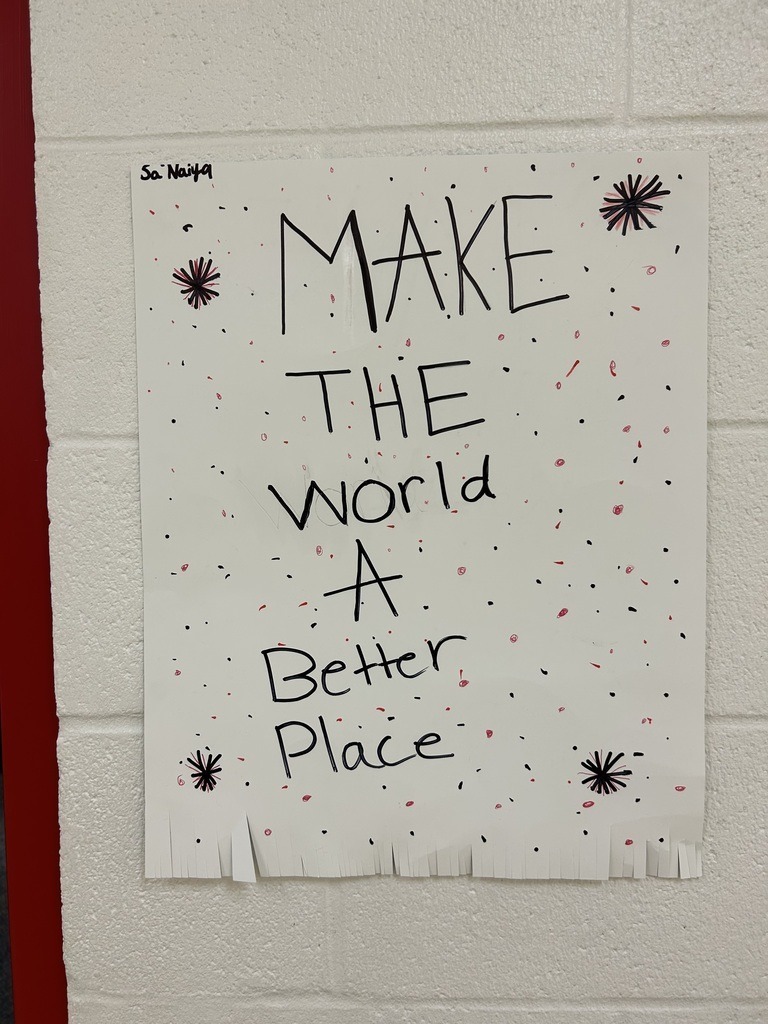 Sa'Naiya
MAKE
THE
World
A
Better
Place